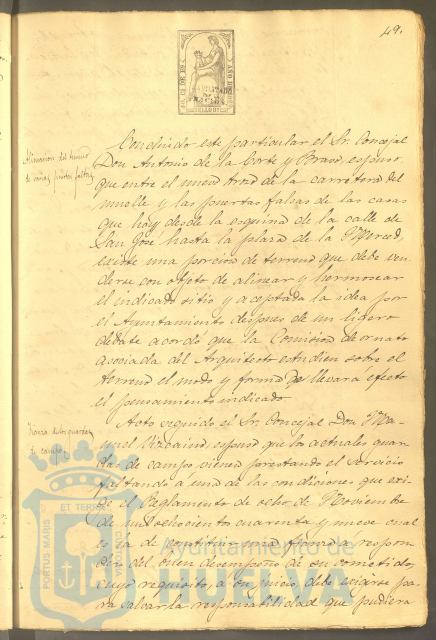 49.
Concluido este particular el Sr. Concejal
Don Antonio de la Corte y Bravo espuso
que entre el nuevo trozo de la carretera del
muelle y las puertas falsas de las casas
que hay desde la esquina de la calle de
San José hasta la plaza de la Merced,
existe una porcion de terreno que debe ven-
derse con objeto de alinear y hermosear
el indicado sitio y aceptada la idea por
el Ayuntamiento despues de un ligero
debate acordó que la Comision de ornato
asociada del Arquitecto estudien sobre el
terreno el modo y forma de llevar á efecto
el pensamiento indicado
Acto seguido el Sr. Concejal Don Ma-
nuel Vizcaino espuso que los actuales guar-
das de campo vienen prestando el servicio
faltando á una de las condiciones que exi-
je el Reglamento de ocho de Noviembre
de mil ochocientos cuarenta y nueve cual
es la de constituir una fianza á respon-
der del buen desempeño de su cometido,
cuyo requisito, á su juicio, debe exigirse pa-
ra salvar la responsabilidad que pudiera
Alineacion del terreno
de varias puertas falsas
Fianza de los guardas
de campo
PORTUS MARIS ET TERRAE CUSTODIA
Ayuntamiento de
HUELVA